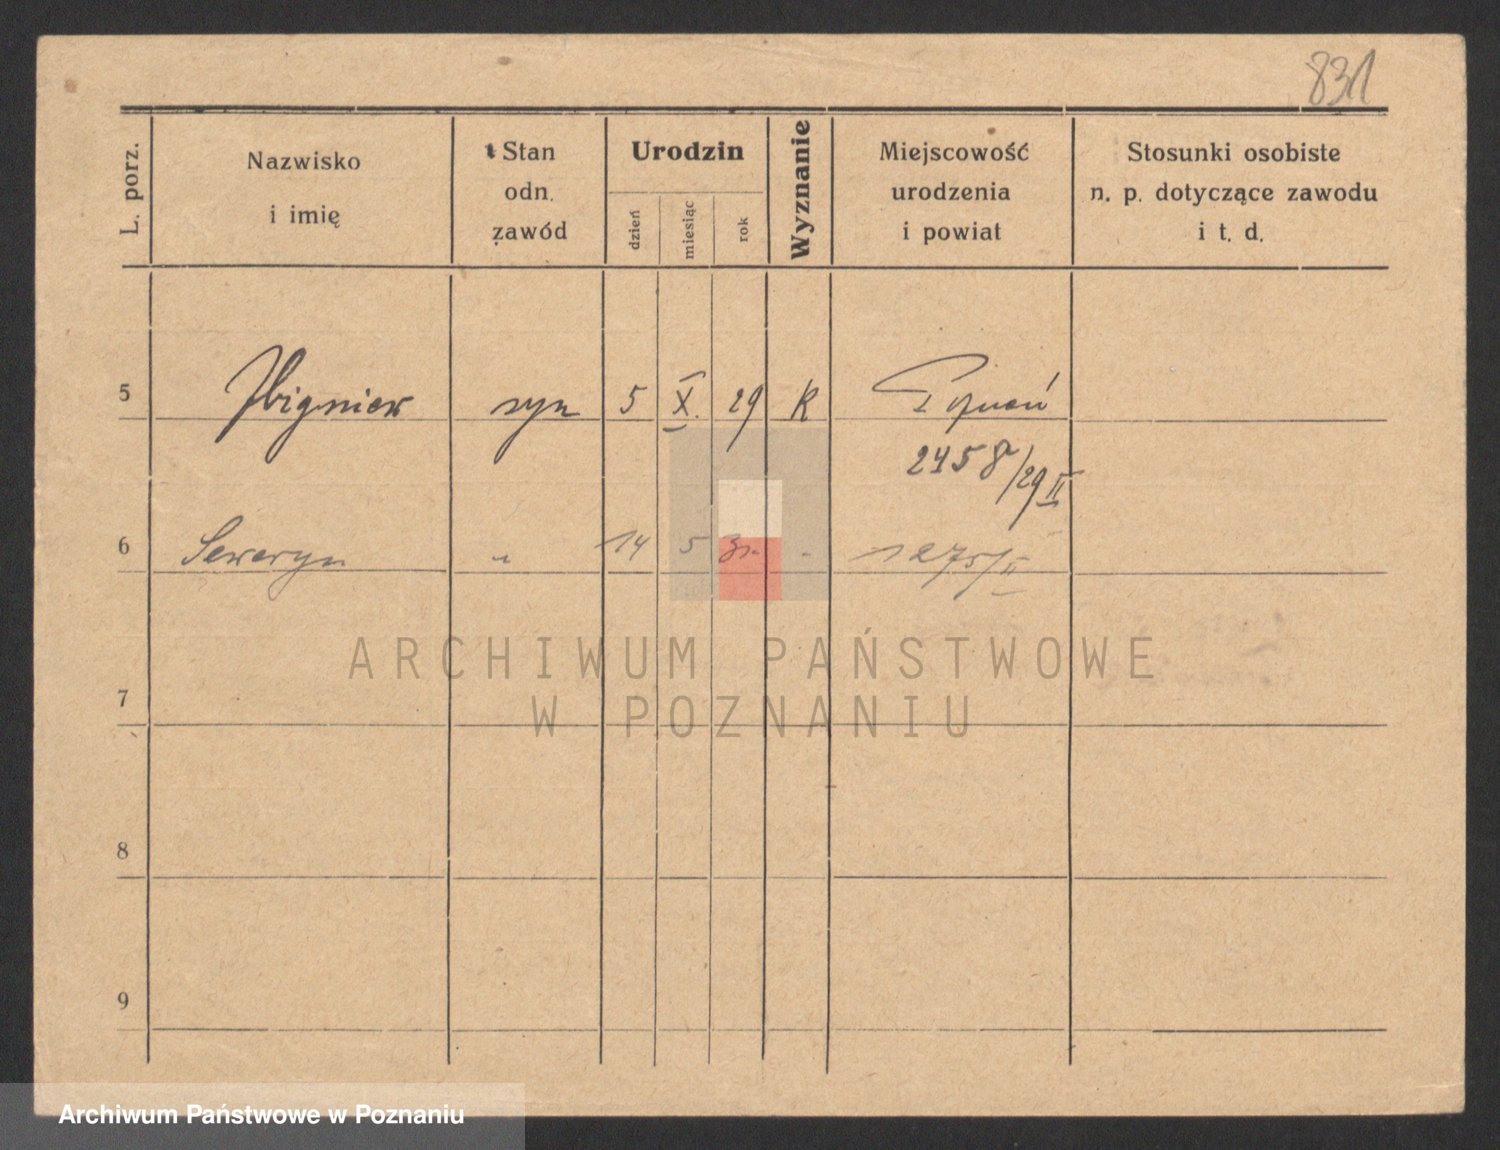 831
L. porz.
Nazwisko
i imię
Stan
odn.
zawód
Urodzin
dzień
miesiąc
rok
Wyznanie
Miejscowość
urodzenia
i powiat
Stosunki osobiste
n. p. dotyczące zawodu
i t. d.
5 Zbigniew syn 5 X. 29 R Poznań
2458/29 II
6 Seweryn " 14 5 31. - 1275/II
ARCHIWUM PAŃSTWOWE
W POZNANIU
7
8
9
Archiwum Państwowe w Poznaniu